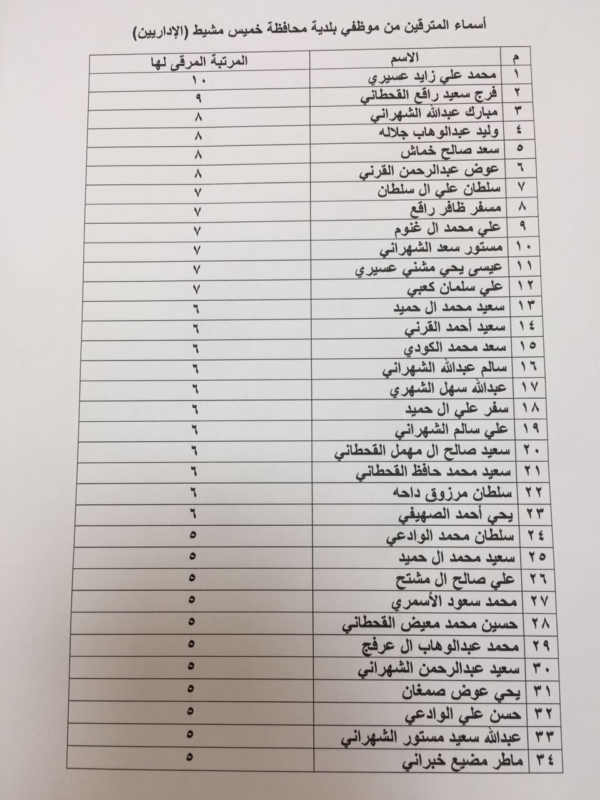 أسماء المترقين من موظفي بلدية محافظة خميس مشيط (الإداريين)
م الاسم المرتبة المرقى لها
١ محمد علي زايد عسيري ١٠
٢ فرج سعيد راقع القحطاني ٩
٣ مبارك عبدالله الشهراني ٨
٤ وليد عبدالوهاب جلاله ٨
٥ سعد صالح خماش ٨
٦ عوض عبدالرحمن القرني ٨
٧ سلطان علي ال سلطان ٧
٨ مسفر ظافر راقع ٧
٩ علي محمد ال غنوم ٧
١٠ مستور سعد الشهراني ٧
١١ عيسى يحي مشني عسيري ٧
١٢ علي سلمان كعبي ٧
١٣ سعيد محمد ال حميد ٦
١٤ سعيد أحمد القرني ٦
١٥ سعد محمد الكودي ٦
١٦ سالم عبدالله الشهراني ٦
١٧ عبدالله سهل الشهري ٦
١٨ سفر علي ال حميد ٦
١٩ علي سالم الشهراني ٦
٢٠ سعيد صالح ال مهمل القحطاني ٦
٢١ سعيد محمد حافظ القحطاني ٦
٢٢ سلطان مرزوق داحه ٦
٢٣ يحي أحمد الصهيفي ٦
٢٤ سلطان محمد الوادعي ٥
٢٥ سعيد محمد ال حميد ٥
٢٦ علي صالح ال مشتح ٥
٢٧ محمد سعود الأسمري ٥
٢٨ حسين محمد معيض القحطاني ٥
٢٩ محمد عبدالوهاب ال عرفج ٥
٣٠ سعيد عبدالرحمن الشهراني ٥
٣١ يحي عوض صمغان ٥
٣٢ حسن علي الوادعي ٥
٣٣ عبدالله سعيد مستور الشهراني ٥
٣٤ ماطر مضيع خبراني ٥